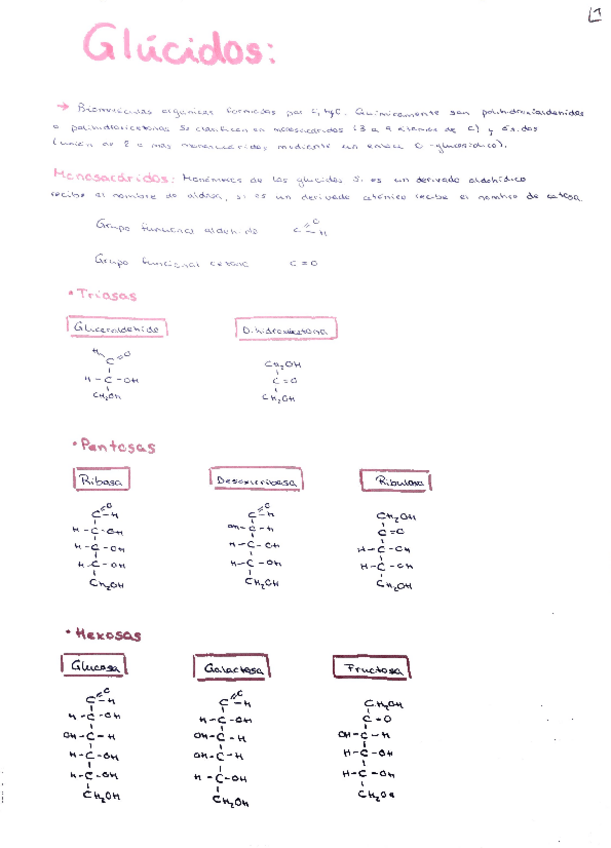 Glúcidos:
→ Biomoléculas orgánicas formadas por C, H y O. Químicamente son polihidroxialdehídos
o polihidroxicetonas. Se clasifican en monosacáridos (3 a 9 átomos de C) y ósidos
(unión de 2 o más monosacáridos mediante un enlace O-glucosídico).
Monosacáridos: Monómeros de los glúcidos. Si es un derivado aldehídico
recibe el nombre de aldosa, si es un derivado cetónico recibe el nombre de cetosa.
Grupo funcional aldehído C=O -H
Grupo funcional cetona C=O
• Triosas
Gliceraldehído Dihidroxicetona
H C=O CH₂OH
H-C-OH C=O
CH₂OH CH₂OH
• Pentosas
Ribosa Desoxirribosa Ribulosa
C=O -H C=O -H CH₂OH
H-C-OH OH-C-H C=O
H-C-OH H-C-OH H-C-OH
H-C-OH H-C-OH H-C-OH
CH₂OH CH₂OH CH₂OH
• Hexosas
Glucosa Galactosa Fructosa
C=O -H C=O -H CH₂OH
H-C-OH H-C-OH C=O
OH-C-H OH-C-H OH-C-H
H-C-OH OH-C-H H-C-OH
H-C-OH H-C-OH H-C-OH
CH₂OH CH₂OH CH₂OH